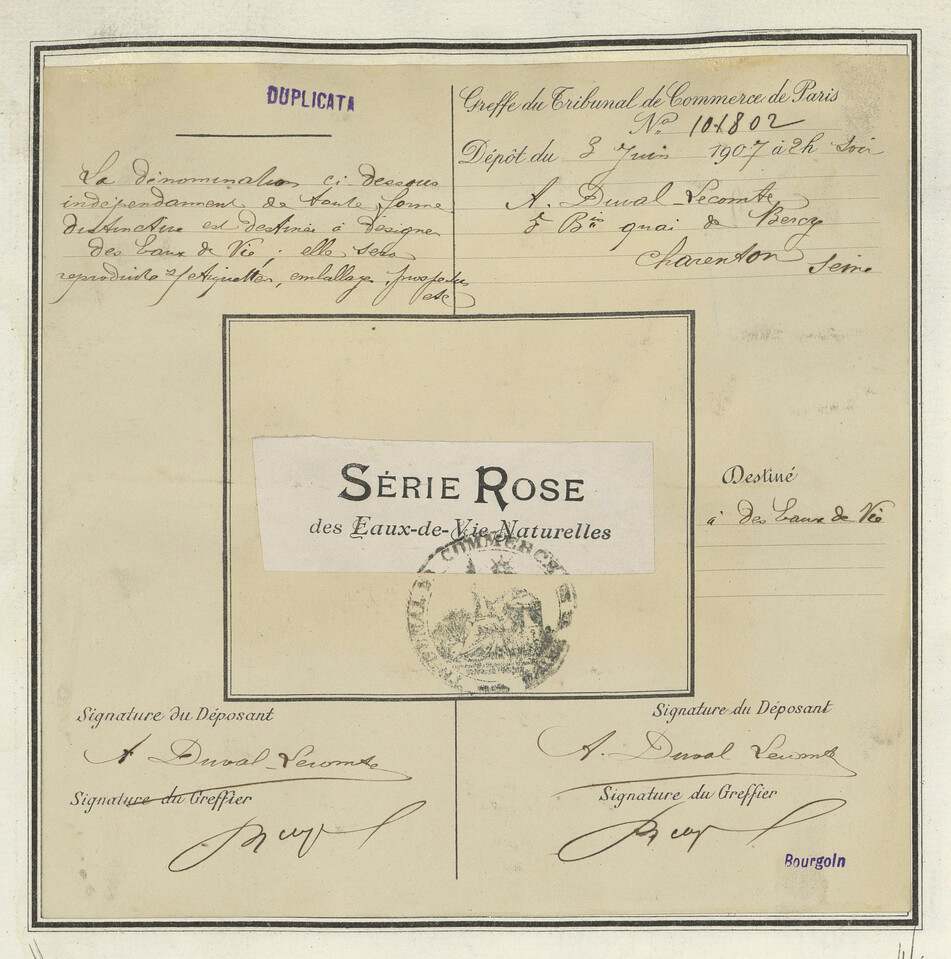 DUPLICATA
La dénomination ci dessous
indépendament de toute forme
distinctive est destinée à désigner
des Eaux de Vie ; elle sera
reproduite s/ etiquettes, emballage, prospectus
etc
Greffe du Tribunal de Commerce de Paris
No 101802
Dépôt du 3 Juin 1907 à 2h Soir
A. Duval-Lecomte
5 Bis quai de Bercy
Charenton Seine
SÉRIE ROSE
des Eaux-de-Vie Naturelles
TRIBUNAL DE COMMERCE
Destiné
à des Eaux de Vie
Signature du Déposant
A Duval-Lecomte
Signature du Greffier
Signature du Déposant
A. Duval Lecomte
Signature du Greffier
Bourgoin